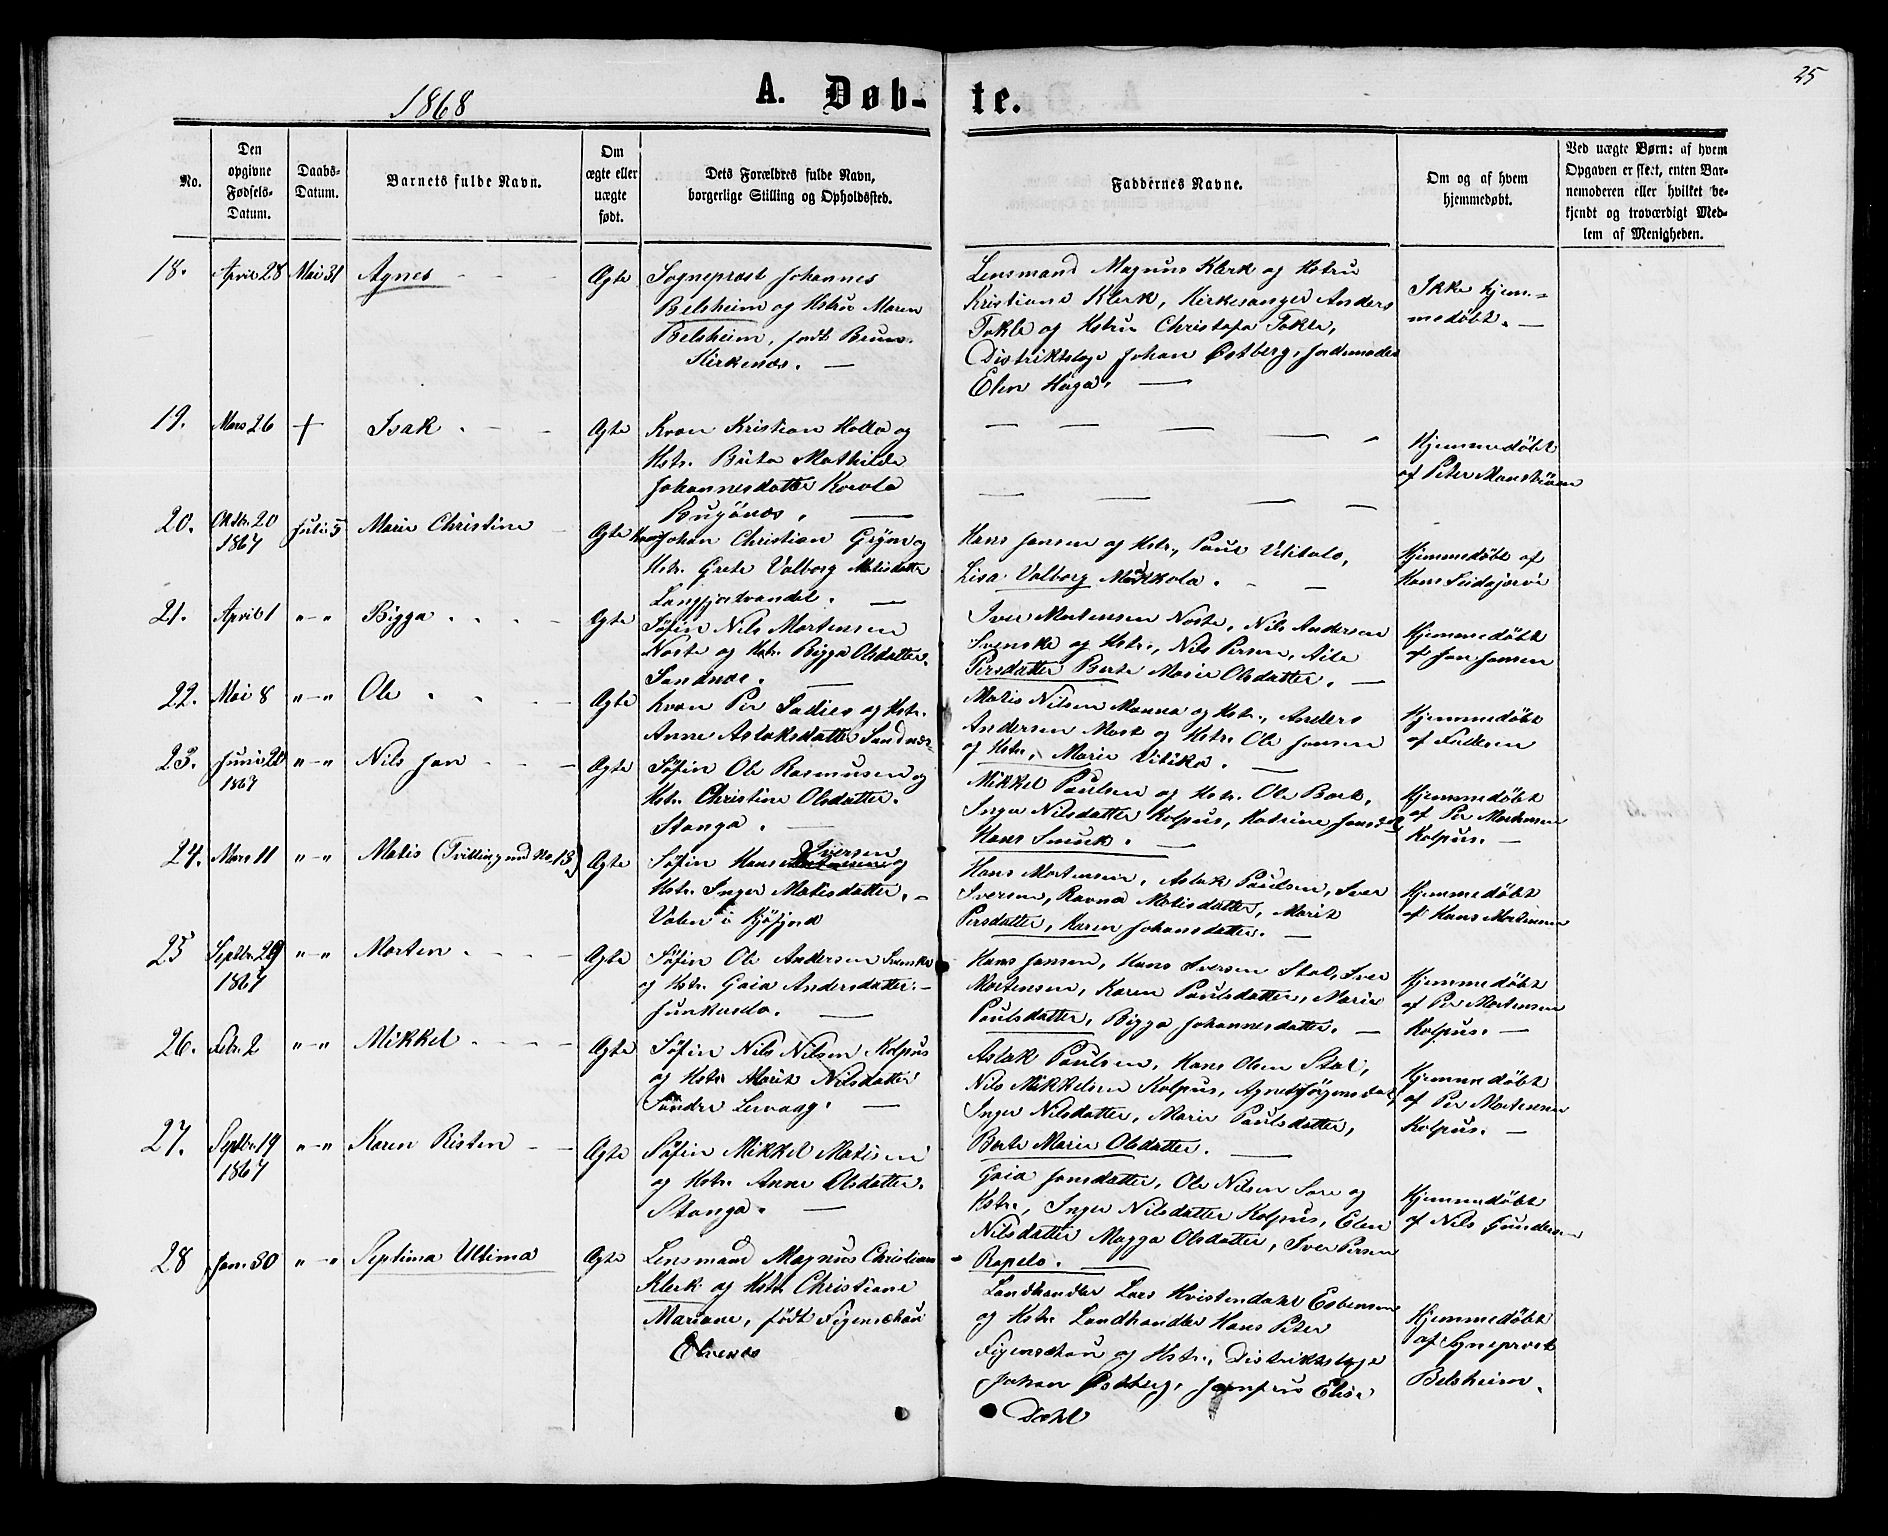 25
1868
A. Døb-te.
No.
Den opgivne Fødsels-Datum.
Daabs-Datum.
Barnets fulde Navn.
Om ægte eller uægte født.
Dets Forældres fulde Navn, borgerlige Stilling og Opholdssted.
Faddernes Navne.
Om og af hvem hjemmedøbt.
Ved uægte Børn: af hvem Opgaven er skeet, enten Barnemoderen eller hvilket bekjendt og troværdigt Medlem af Menigheden.
18. April 28 Mai 31 Agnes Ægte
Sognepræst Johannes
Belsheim og Hstru Maren
Belsheim, født Brun.
Kirkenæs. —
Lensmand Magnus Klerk og Hstru
Kristiane Klerk, Kirkesanger Anders
Tokle og Hstru Christofa Tokle,
Distriktslæge Johan Østberg, Jordmoder
Elen Haga. —
Ikke hjem-
medøbt. —
19. Mars 26 + Isak Ægte
Kvæn Kristian Holla og
Hstr. Brita Mathilde
Johannesdatter
Bugönæs. —
Hjemmedøbt
af Peter
20. Oktbr. 20 1867 Juli 5 Marie Christine Ægte
Kvæn Johan Christian og
Hstr. Grete Valborg Matisdatter
Langfjordvandet. —
Hans Jansen og Hstr., Paul
Lisa Valborg Markkola.
Hjemmedøbt af
Hans
21. April 1 "-" Bigga Ægte
Søfin Nils Mortensen
Noste og Hstr. Bigga Olsdatter.
Sandnæs. —
Iver Mortensen Noste, Nils Andersen
Svenske og Hstr., Nils Persen,
Persdatter Berte Marie Olsdatter. —
Hjemmedøbt
af Jon Jonsen
22. Mai 8 "-" Ole Ægte
Kvæn Per og Hstr.
Anne Aslaksdatter Sandnæs
Matis Nilsen Manna og Hstr., Anders
Andersen og Hstr. Ole Jonsen
og Hstr., Marie
Hjemmedøbt
af
23. Juni 1867 "-" Nils Jon Ægte
Søfin Ole Rasmusen og
Hstr. Christine Olsdatter.
Stonga. —
Mikkel Paulsen og Hstr. Ole Bork,
Inger Nilsdatter Kolpus, Katrine
Hans
Hjemmedøbt
af Per Mortensen
Kolpus. —
24. Mars 11 "-" Matis (Tvilling med No. 13) Ægte
Søfin Hans Iversen og
Hstr. Inger Matisdatter. —
Valen i Kjøfjord
Hans Mortensen, Aslak Paulsen, Iver
Iversen, Ravna Matisdatter, Marit
Persdatter, Karen Johansdatter. —
Hjemmedøbt
af Hans Mortensen
25 Septbr. 29 1867 "-" Morten Ægte
Søfin Ole Andersen Svenske
og Hstr. Gaia Andersdatter. —
Junkersdo. —
Hans Jansen, Hans Iversen Stal, Iver
Mortensen, Karen Paulsdatter, Marie
Paulsdatter, Bigga Johannesdatter. —
Hjemmedøbt
af Per Mortensen
Kolpus. —
26. Febr. 2 "-" Mikkel Ægte
Søfin Nils Nilsen Kolpus
og Hstr. Marit Nilsdatter
Søndre Lervaag. —
Aslak Paulsen, Hans Olsen Stal,
Nils Mikkelsen Kolpus, Agnes
Inger Nilsdatter, Marie Paulsdatter,
Berte Marie Olsdatter. —
Hjemmedøbt
af Per Mortensen
Kolpus. —
27. Septbr. 19 1867 "-" Karen Risten Ægte
Søfin Mikkel Matisen
og Hstr. Anne Olsdatter.
Stonga. —
Gaia Jonsdatter, Ole Nilsen Sore og
Hstr., Inger Nilsdatter Kolpus, Elen
Nilsdatter Magga Olsdatter, Iver Persen
Rapelo. —
Hjemmedøbt
af Nils Gundersen
28 Jan. 30 "-" Septima Ultima Ægte
Lensmand Magnus Christian
Klerk og Hstr. Christiane
Mariane, født Figenschau
Elvenæs
Landhandler Lars Hvistendahl Esbensen
og Hstr. Landhandler Hans Peter
Figenschau og Hstr., Distriktslæge
Johan Østberg, Jomfru Elise
Dahl
Hjemmedøbt
af Sognepræst
Belsheim.